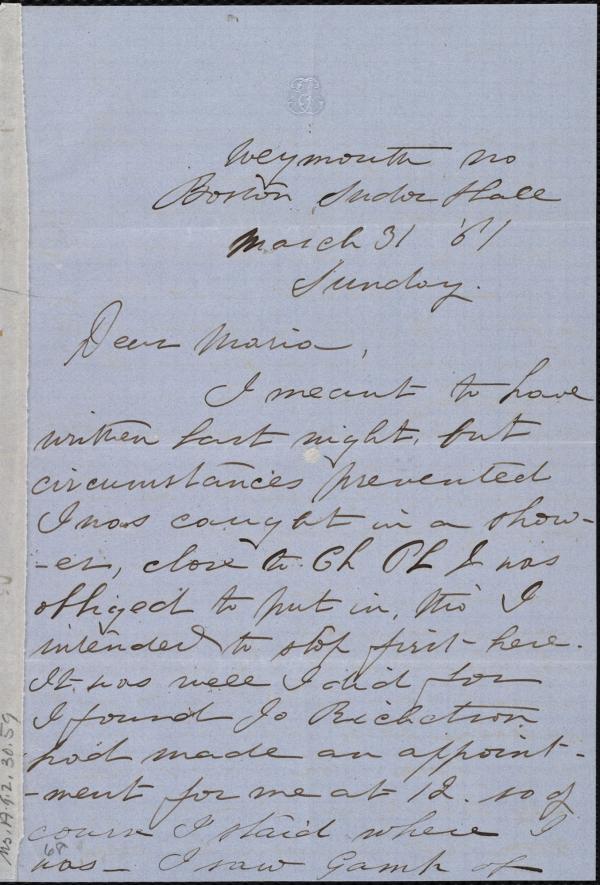 Weymouth no
Boston Tudor Hall
March 31 '61
Sunday.
Dear Maria,
I meant to have
written last night, but
circumstances prevented
I was caught in a show-
-er, close to Ch Pl & was
obliged to put in, tho' I
intended to stop first here.
It was well I did for
I found Jo Ricketson
had made an appoint-
-ment for me at 12. so of
course I staid where I
was— I saw Gamp of
Ms. A.9.2, 30.59